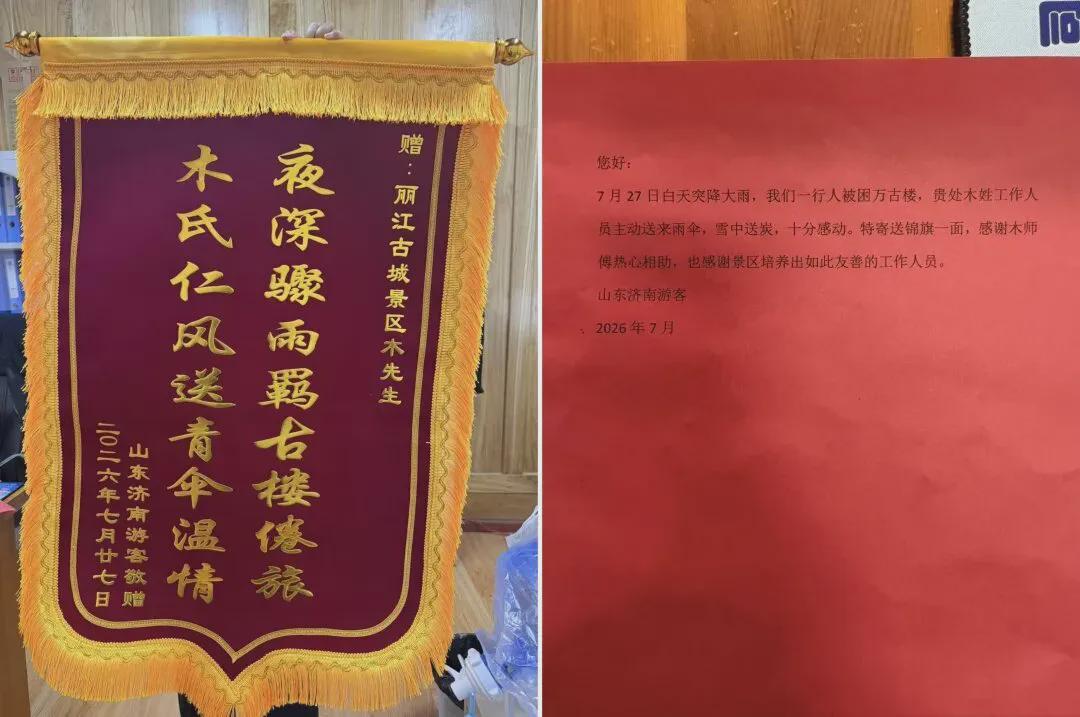 赠：丽江古城景区木先生
夜深骤雨羁古楼倦旅
木氏仁风送青伞温情
山东济南游客敬赠
二〇二六年七月廿七日
您好：
7月27日白天突降大雨，我们一行人被困万古楼，贵处木姓工作人
员主动送来雨伞，雪中送炭，十分感动。特寄送锦旗一面，感谢木师
傅热心相助，也感谢景区培养出如此友善的工作人员。
山东济南游客
2026年7月